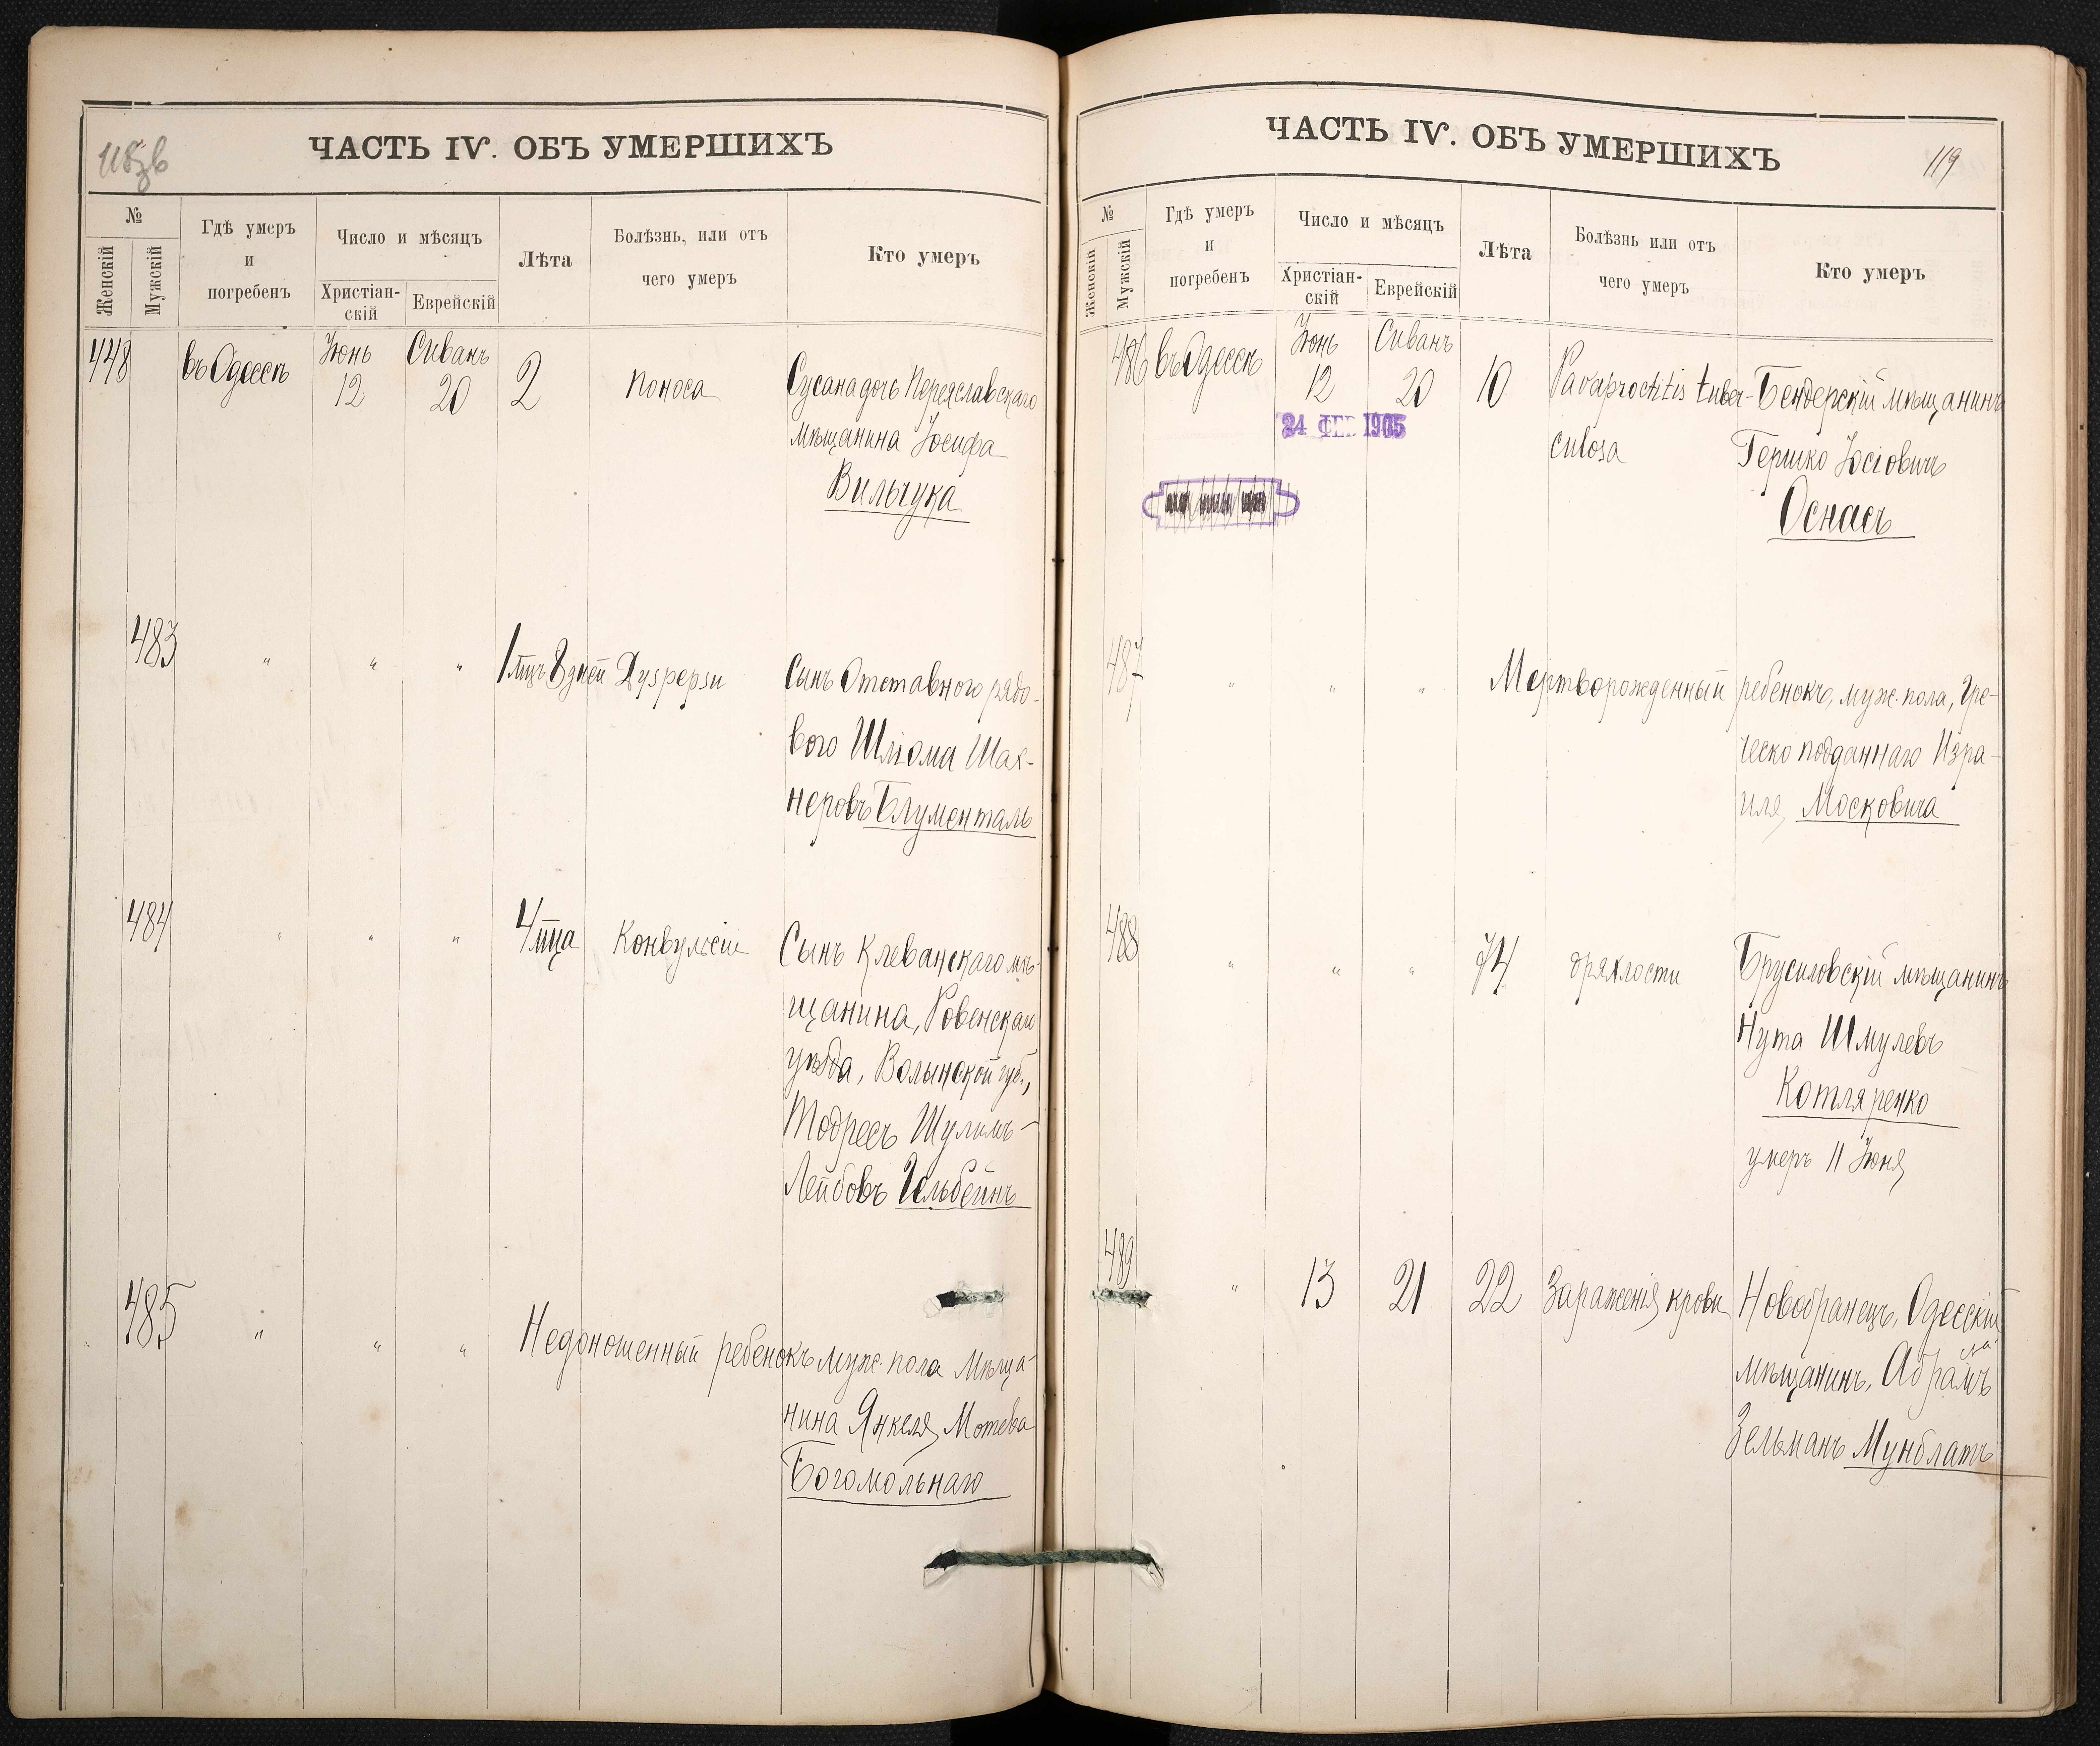 118 зв
ЧАСТЬ IV. ОБЪ УМЕРШИХЪ
№
Женскій
Мужскій
Гдѣ умеръ
и
погребенъ
Число и мѣсяцъ
Христіан-
скій
Еврейскій
Лѣта
Болѣзнь, или отъ
чего умеръ
Кто умеръ
448 въ Одессѣ Іюнь 12 Сиванъ 20 2 поноса Сусана дочь Переяславскаго
мѣщанина Іосифа
Вильчука
483 " " " 1 мцъ 8 дней Dyspepsii Сынъ Отставного рядо-
вого Шліома Шах-
неровъ Блументаль
484 " " " 4 мца Конвульсіи Сынъ Клеванскаго мѣ-
щанина, Ровенскаго
уѣзда, Волынской губ.,
Тодресъ Шулимъ-
Лейбовъ Гельбейнъ
485 " " " Недоношенный ребенокъ муж. пола мѣща-
нина Янкеля Мотева
Богомольнаго
ЧАСТЬ IV. ОБЪ УМЕРШИХЪ
119
№
Женскій
Мужскій
Гдѣ умеръ
и
погребенъ
Число и мѣсяцъ
Христіан-
скій
Еврейскій
Лѣта
Болѣзнь или отъ
чего умеръ
Кто умеръ
486 въ Одессѣ Іюнь 12 Сиванъ 20 10 Paraproctitis tuber- Бендерскій мѣщанинъ
24 ФЕВ 1905
culosa Гершко Іосіовичъ
Оснасъ
487 " " " Мертворожденный ребенокъ, муж. пола, Гре-
ческо подданнаго Изра-
иля Московича
488 " " " 74 дряхлости Брусиловскій мѣщанинъ
Нута Шмулевъ
Котляренко
умеръ 11 Іюня
489 " 13 21 22 Зараженія крови Новобранецъ, Одесскій
мѣщанинъ, Абрамъ
Зельманъ Мунблатъ